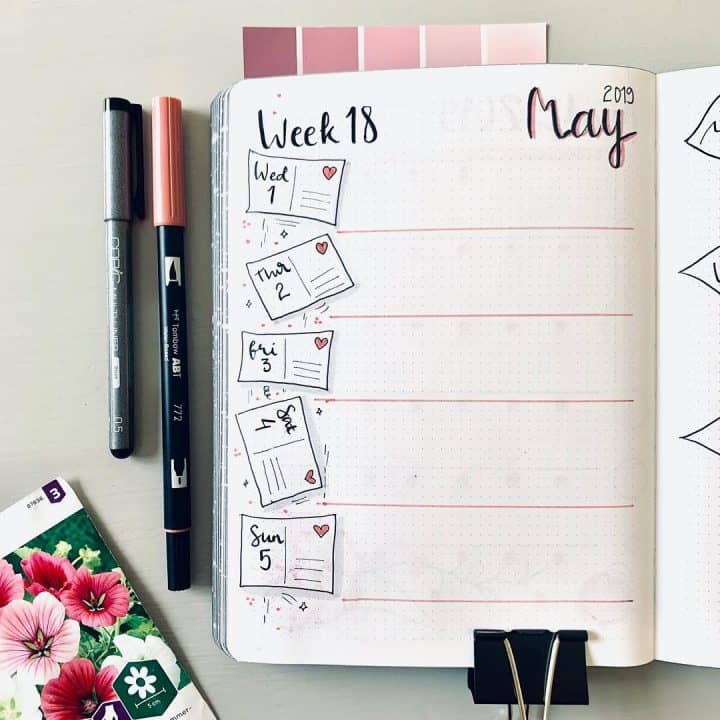 Week 18
2019
May
Wed
1
Thr
2
Fri
3
Sat
4
Sun
5
COPIC MULTILINER
0.5
Tombow ABT
772
87656
3
5 cm